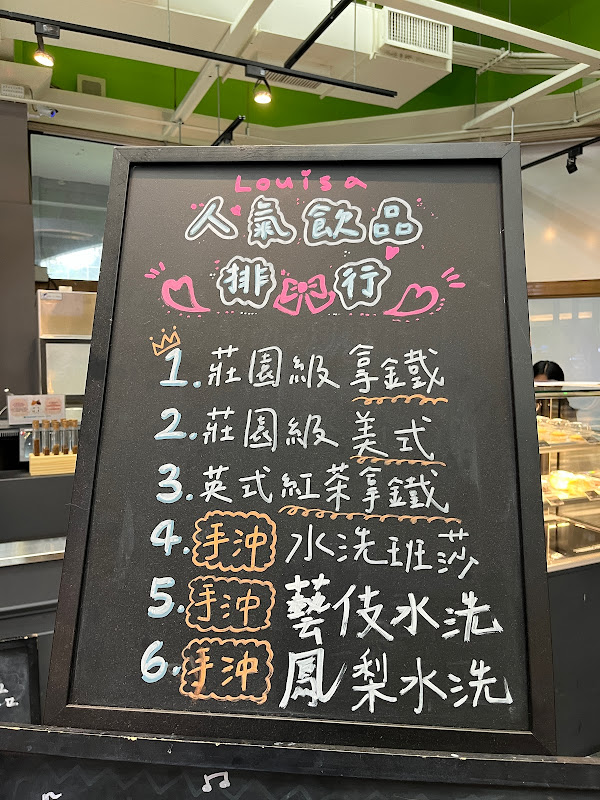 Louisa
人氣飲品
排行
1. 莊園級 拿鐵
2. 莊園級 美式
3. 英式紅茶拿鐵
4. 手沖 水洗班莎
5. 手沖 藝伎水洗
6. 手沖 鳳梨水洗